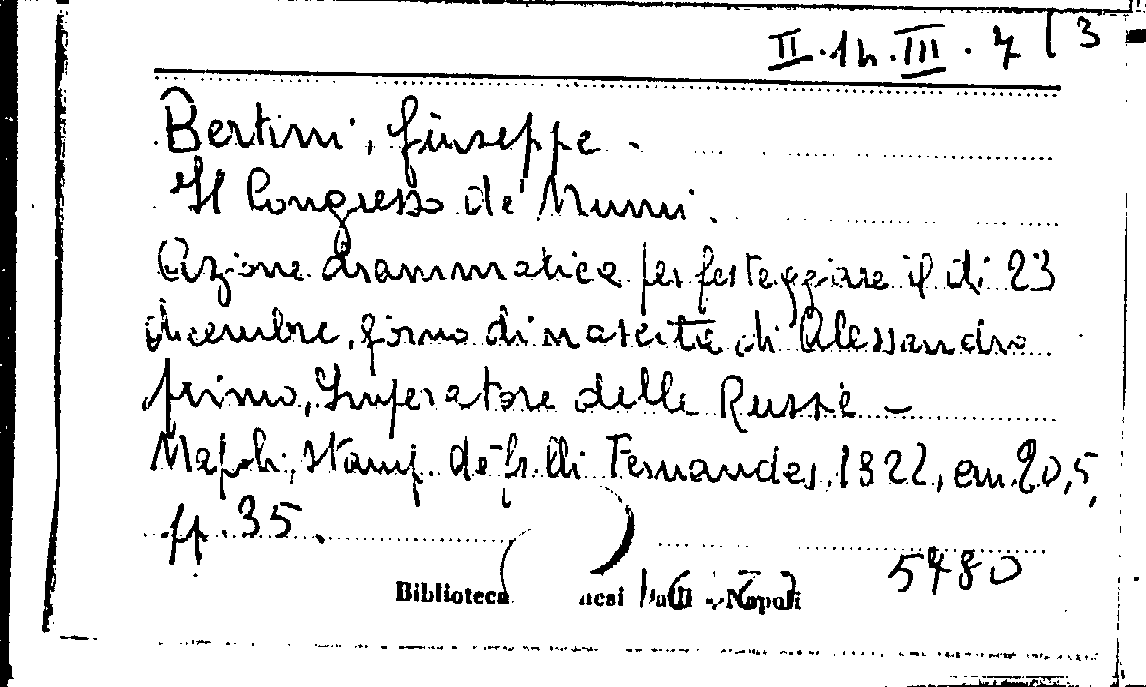 II. 1h. III. 7 | 3
Bertini, Giuseppe.
Il Congresso de' Numi.
Azione drammatica per festeggiare il dì 23
dicembre, giorno di nascita di Alessandro
primo, Imperatore delle Russie –
Napoli, Stamp. de' fr.lli Fernandes, 1822, cm. 20,5,
pp. 35.
5480
Biblioteca Napoli